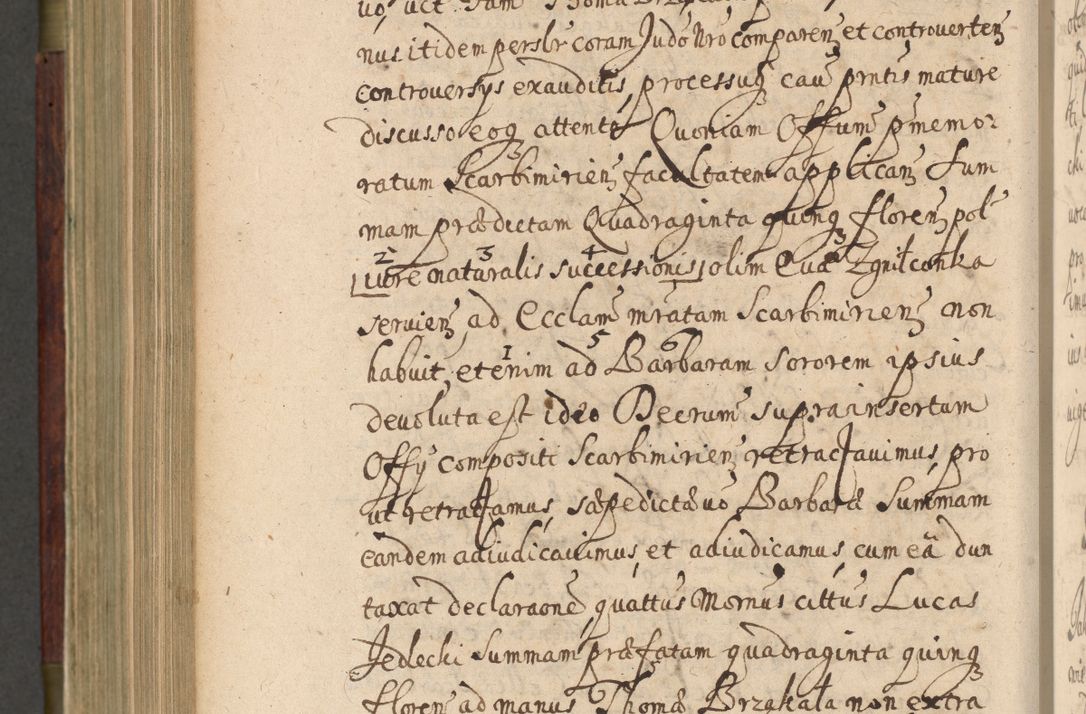 nus itidem perslr coram Judō Nro comparen et controverten
controversys exauditis, processuq cau prntis mature
discusso eoq attente Quoniam Offum pmemo2
ratum Scarbimirien facultatem applican Sum
mam prædictam Quadraginta quinq floren pol
2 3 4
iure naturalis successionis olim Evæ Zgnilconka
servien ad Ecclam mratam Scarbimirien non
1 5 6
habuit, etenim ad Barbaram sororem ipsius
devoluta est ideo Decrum suprainsertum
Offy compositi Scarbimirien retractavimus, pro
ut retractamus, sæpedictæ vo Barbaræ Summam
eandem adiudicavimus, et adiudicamus, cum eā dun
taxat declaraone, quattus Mornus cittus Lucas
Jedlecki Summam præfatam quadraginta quinq
floren ad manus Thomæ Brząkała non extra